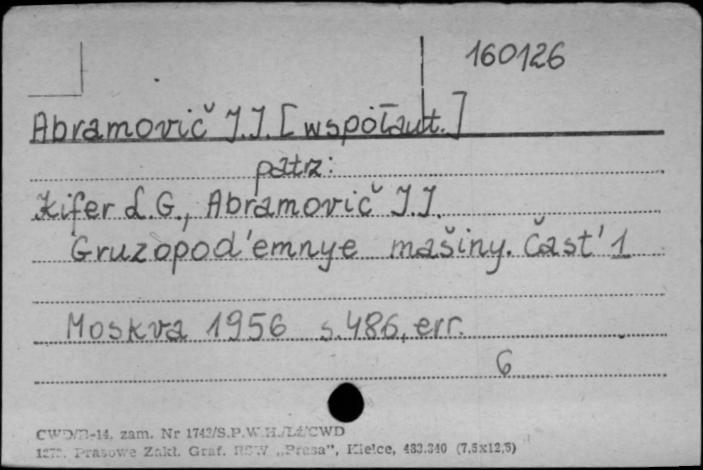 160126
Abramovič J.J. [współaut.]
patrz:
Kifer L.G., Abramovič J.J.
Gruzopod'emnye mašiny. Čast' 1
Moskva 1956 s.486, err.
6
zam. Nr 1742/S.P.W.H./Ł4/CWD
Prasowe Zakł. Graf. RSW „Prasa", Kielce, 483.340 (7,5x12,5)